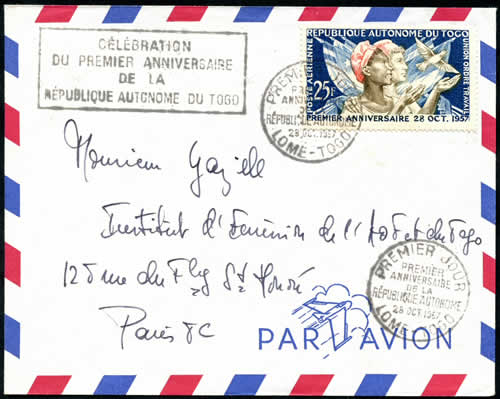 CÉLÉBRATION
DU PREMIER ANNIVERSAIRE
DE LA
RÉPUBLIQUE AUTONOME DU TOGO
RÉPUBLIQUE AUTONOME DU TOGO
POSTE AÉRIENNE
UNION ORDRE TRAVAIL
25F
PREMIER ANNIVERSAIRE 28 OCT. 1957
PREMIER
RÉPUBLIQUE AUTONOME
28 OCT. 1957
LOMÉ-TOGO
Monsieur
Institut d' de l' et du Togo
125 rue du Fbg St Honoré
Paris 8C
PREMIER JOUR
PREMIER
ANNIVERSAIRE
DE LA
RÉPUBLIQUE AUTONOME
28 OCT 1957
LOMÉ-TOGO
PAR AVION